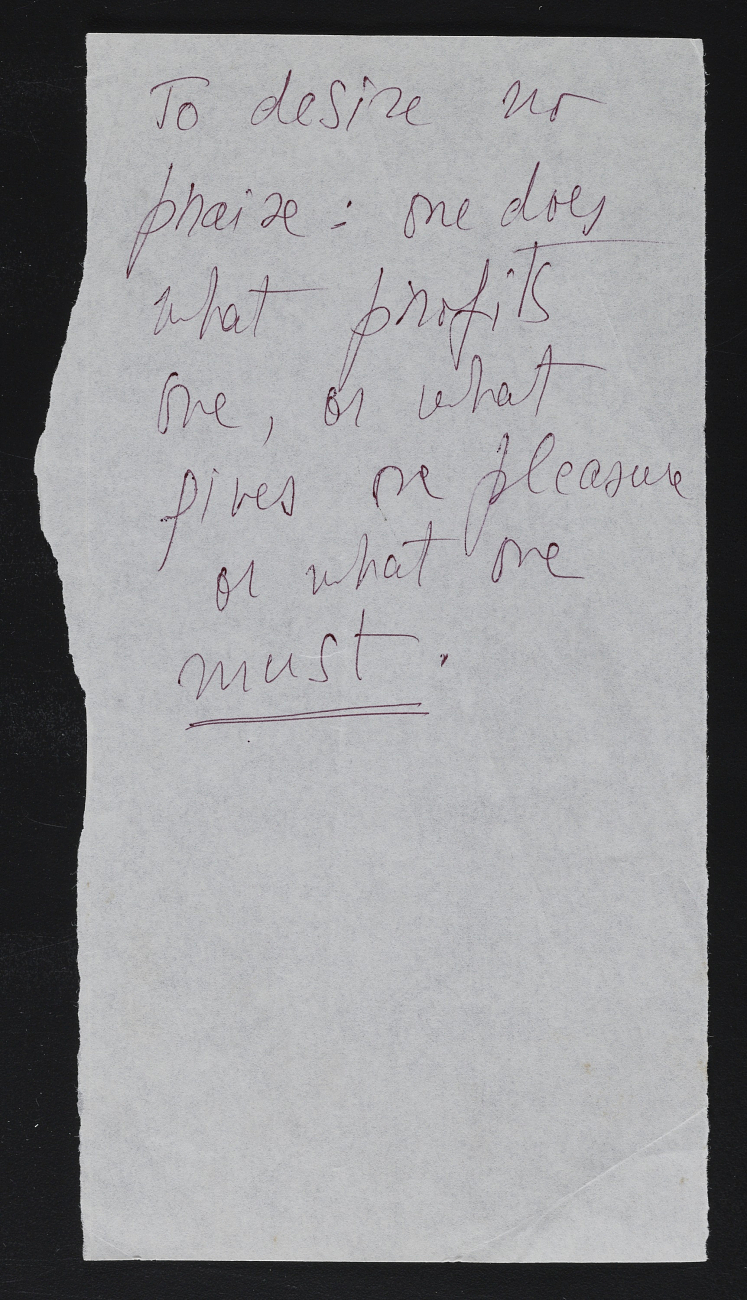 To desire no
praise : one does
what profits
one, or what
gives one pleasure
or what one
must.